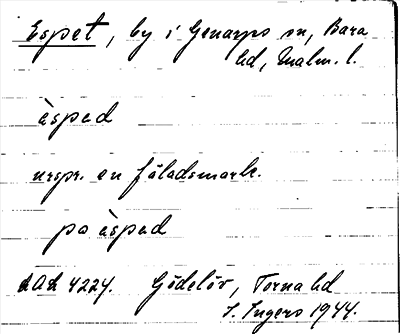 Espet, by i Genarps sn, Bara
hd, Malm. l.
èsped
urspr. en fäladsmark.
po èsped
LAL 4224. Gödelöv, Torna hd
I. Ingers 1944.